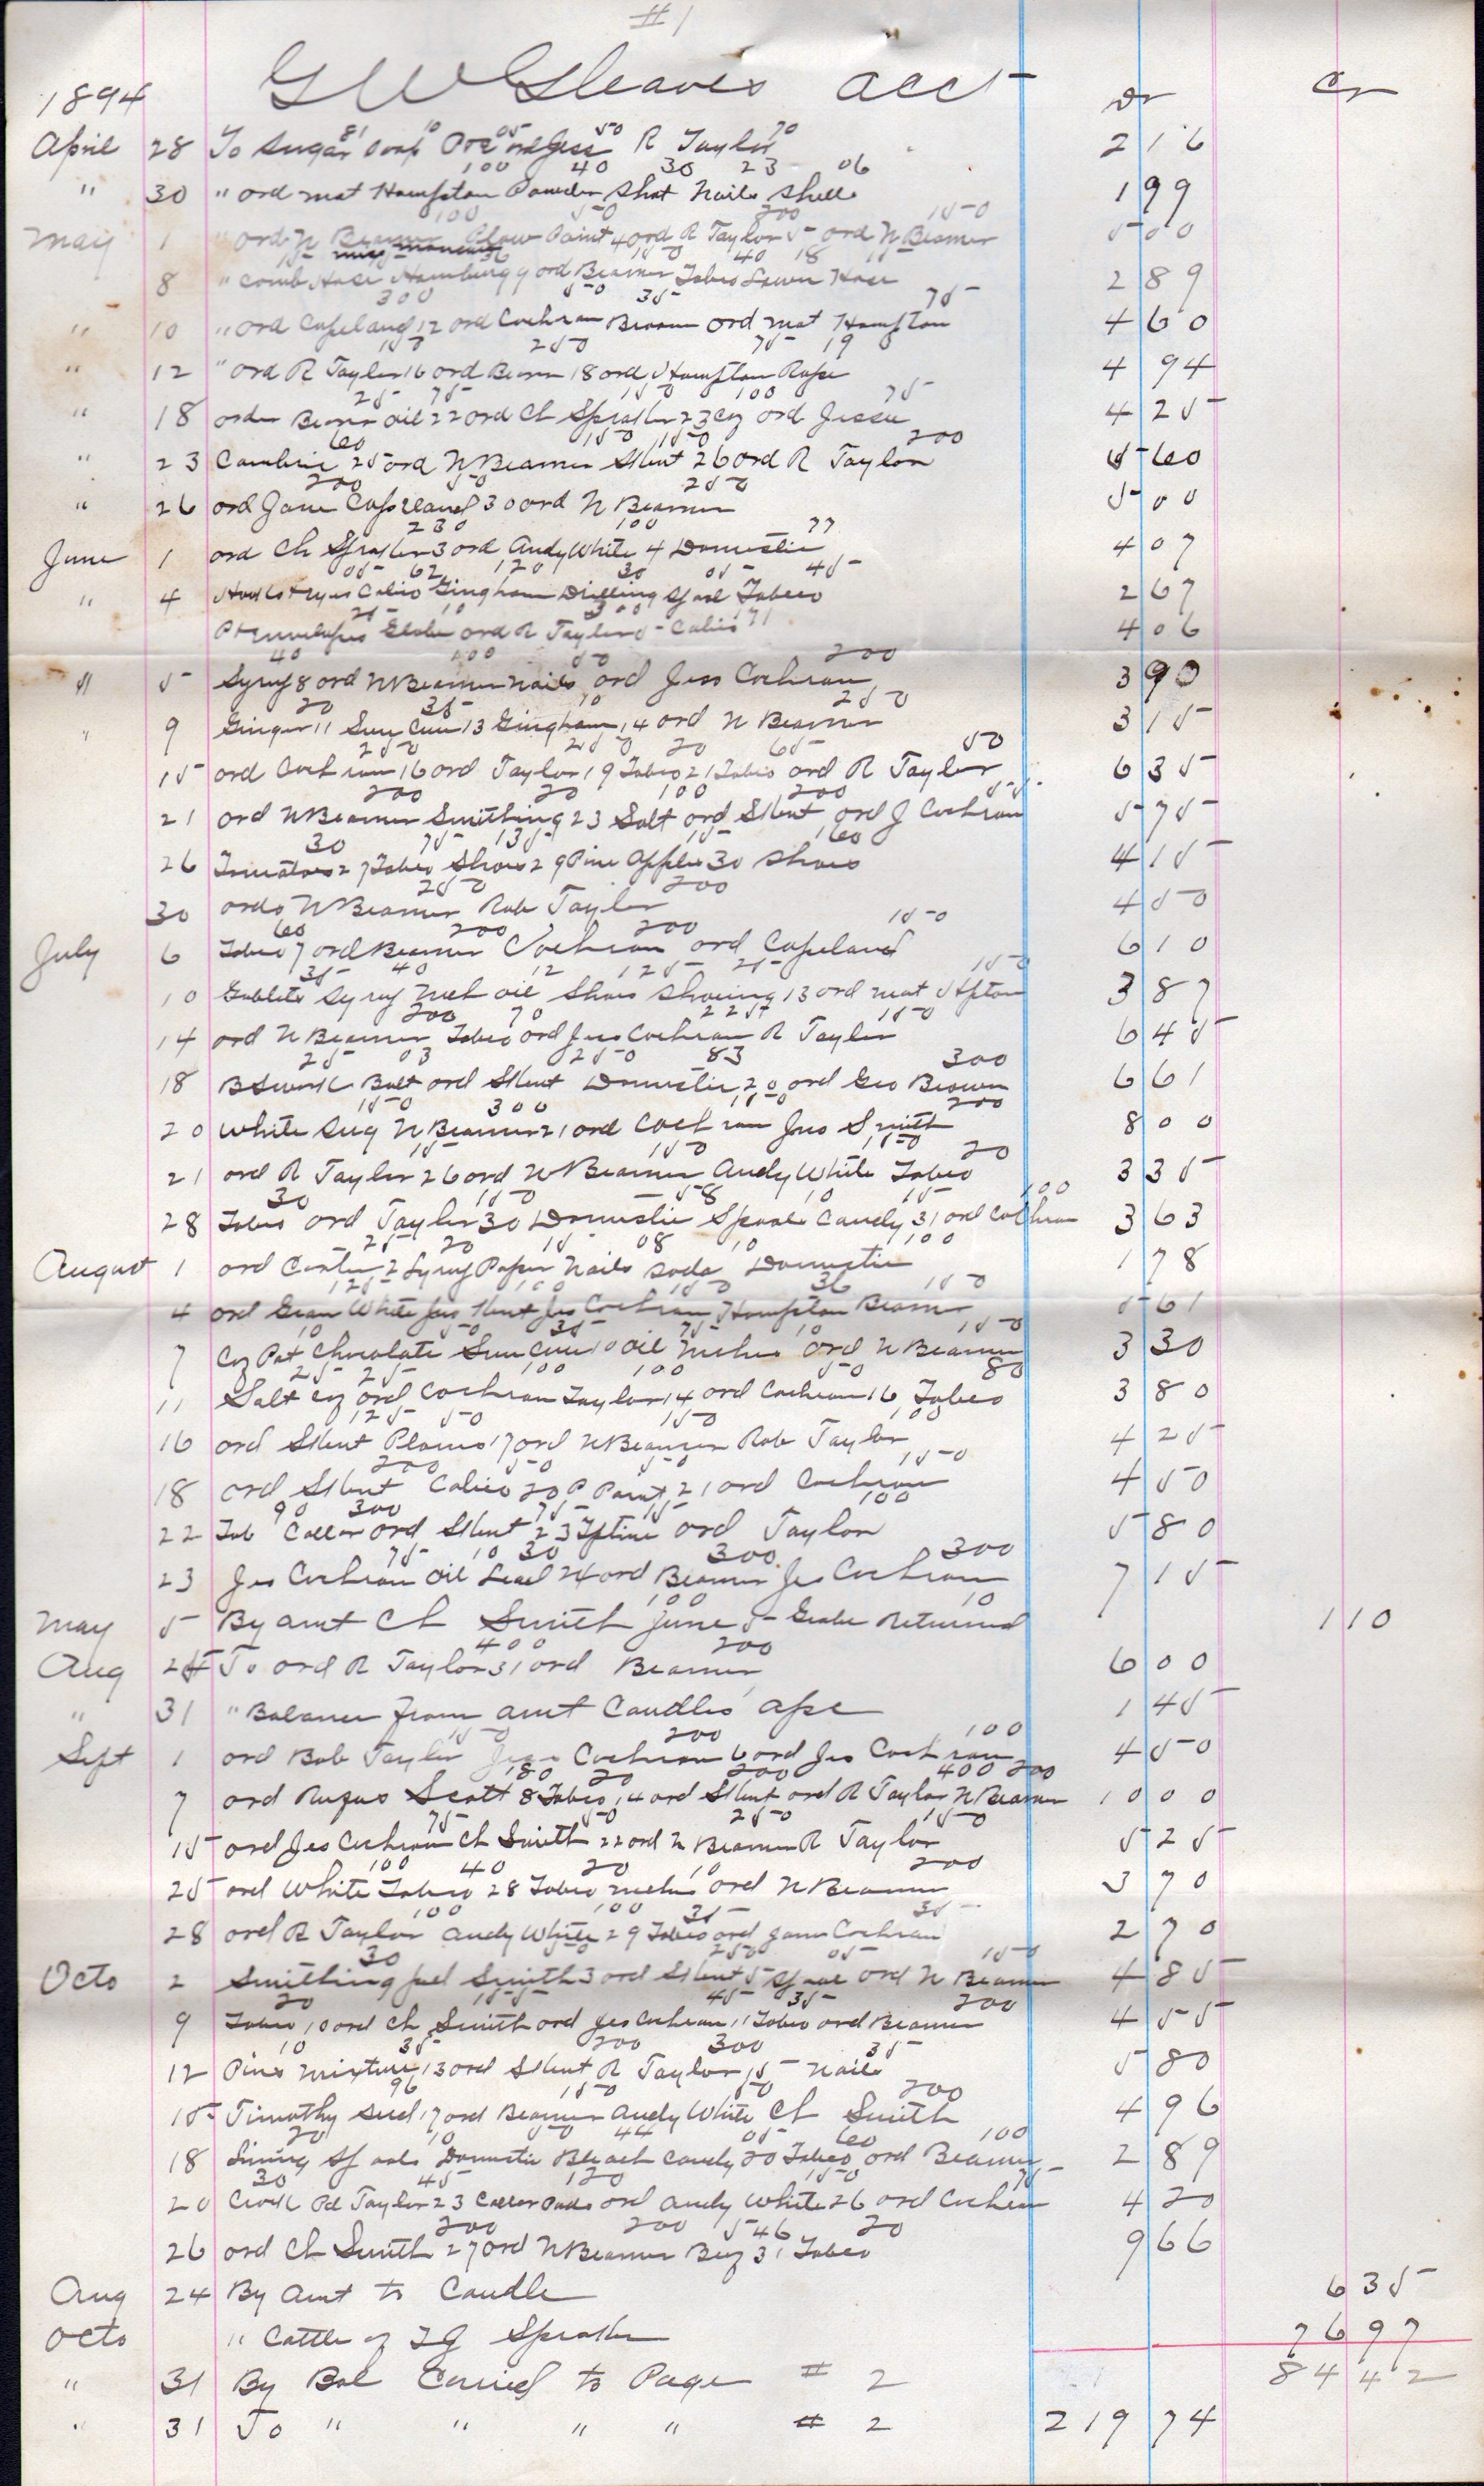 #1
G W Gleaves acct
1894 Dr Cr
81 10 05 50 70
April 28 To Sugar soap ord Jess R Taylor 2 16
100 40 30 23 06
" 30 " ord mat Hampton Powder Shot Nails Shells 1 99
100 50 200 150
May 1 " ord N Beamer Plow Point 4 ord R Taylor 5 ord N Beamer 5 00
8 " Comb Hose Hamburg 9 ord Beamer Tobco Lawn Hose 2 89
300 50 35 75
" 10 " ord Copeland 12 ord Cochran Broom ord mat Hampton 4 60
150 250 75 19
" 12 " ord R Taylor 16 ord Beamer 18 ord Hampton Rope 4 94
25 75 150 100 75
" 18 order Beamer oil 22 ord Ch Spraker 23 ord Jessee 4 25
60 150 150 200
" 23 Cambric 25 ord N Beamer Stent 26 ord R Taylor 5 60
200 50 250
" 26 ord Jane Copeland 30 ord N Beamer 5 00
230 100 77
June 1 ord Ch Spraker 3 ord Andy White 4 Domestic 4 07
05 62 120 30 05 45
" 4 Hooks & eyes Calico Gingham Drilling Spool Tobcco 2 67
25 10 300 71
Pk Envelopes Globe ord R Taylor 5 Calico 4 06
40 100 50 200
" 5 Syrup 8 ord N Beamer Nails ord Jess Cochran 3 90
20 35 10 250
" 9 Ginger 11 Sure Cure 13 Gingham 14 ord N Beamer 3 15
250 250 20 65 50
15 ord Cochran 16 ord Taylor 19 Tobco 21 Tobco ord R Taylor 6 35
200 20 100 200 55
21 ord N Beamer Smithing 23 Salt ord Stent ord J Cochran 5 75
30 75 135 15 160
26 Tomatoes 27 Tobco Shoes 29 Pine Apples 30 Shoes 4 15
250 200
30 ords N Beamer Rob Taylor 4 50
60 200 200 150
July 6 Tobco 7 ord Beamer Cochran ord Copeland 6 10
35 40 12 125 25 150
10 Goblets Syrup Mch oil Shoes Shoeing 13 ord mat Hpton 3 87
200 70 225 150
14 ord N Beamer Tobco ord Jess Cochran R Taylor 6 45
25 03 250 83 300
18 BSwork Bolt ord Stent Domestic 20 ord Geo Brown 6 61
150 300 150 200
20 White Sug N Beamer 21 ord Cochran Jno Smith 8 00
15 150 150 20
21 ord R Taylor 26 ord N Beamer Andy White Tobco 3 35
30 150 58 10 15 100
28 Tobco ord Taylor 30 Domestic Spools Candy 31 ord Cochran 3 63
25 20 15 08 10 100
August 1 ord Carter 2 Syrup Paper Nails Soda Domestic 1 78
125 100 150 36 150
4 ord Gran White Jas Stent Jes Cochran 7 Hampton Beamer 5 61
10 50 35 75 10 150
7 Chocolate Sure Cure 10 oil ord N Beamer 3 30
25 25 100 100 50 80
11 Salt ord Cochran Taylor 14 ord Cochran 16 Tobco 3 80
125 50 150 100
16 ord Stent Plows 17 ord N Beamer Rob Taylor 4 25
200 50 50 150
18 ord Stent Calico 20 P Point 21 ord Cochran 4 50
90 300 75 15 100
22 Tob Collar ord Stent 23 ord Taylor 5 80
75 10 30 300 300
23 Jes Cochran Oil Lead 24 ord Beamer Jes Cochran 7 15
100 10
May 5 By amt Ch Smith June 5 Globe Returned 1 10
400 200
Aug 25 To ord R Taylor 31 ord Beamer 6 00
" 31 " Balance from amt Caudles apc 1 45
150 200 100
Sept 1 ord Bob Taylor Jess Cochran 6 ord Jes Cochran 4 50
180 20 200 400 200
7 ord Rufus Scott 8 Tobco 14 ord Stent ord R Taylor N Beamer 10 00
75 50 250 150
15 ord Jes Cochran Ch Smith 22 ord N Beamer R Taylor 5 25
100 40 20 10 200
25 ord White Tobco 28 Tobco ord N Beamer 3 70
100 100 35 35
28 ord R Taylor Andy White 29 Tobco ord Jane Cochran 2 70
30 50 250 05 150
Octo 2 Smithing Joel Smith 3 ord Stent 5 Spool ord N Beamer 4 85
20 155 45 35 200
9 Tobco 10 ord Ch Smith ord Jes Cochran 11 Tobco ord Beamer 4 55
10 35 200 300 35
12 Pins Mixture 13 ord Stent R Taylor 15 Nails 5 80
96 150 50 200
15 Timothy Seed 17 ord Beamer Andy White Ch Smith 4 96
20 10 50 44 05 60 100
18 Lining Spools Domestic Bleach Candy 20 Tobco ord Beamer 2 89
30 45 120 150 75
20 Crock Pd Taylor 23 Collar Pads ord Andy White 26 ord Cochran 4 20
200 200 546 20
26 ord Ch Smith 27 ord N Beamer Bug 31 Tobco 9 66
Aug 24 By Amt to Caudle 6 35
Octo " Cattle of T G Spraker 76 97
" 31 By Bal Carried to Page # 2 84 42
" 31 To " " " " # 2 219 74